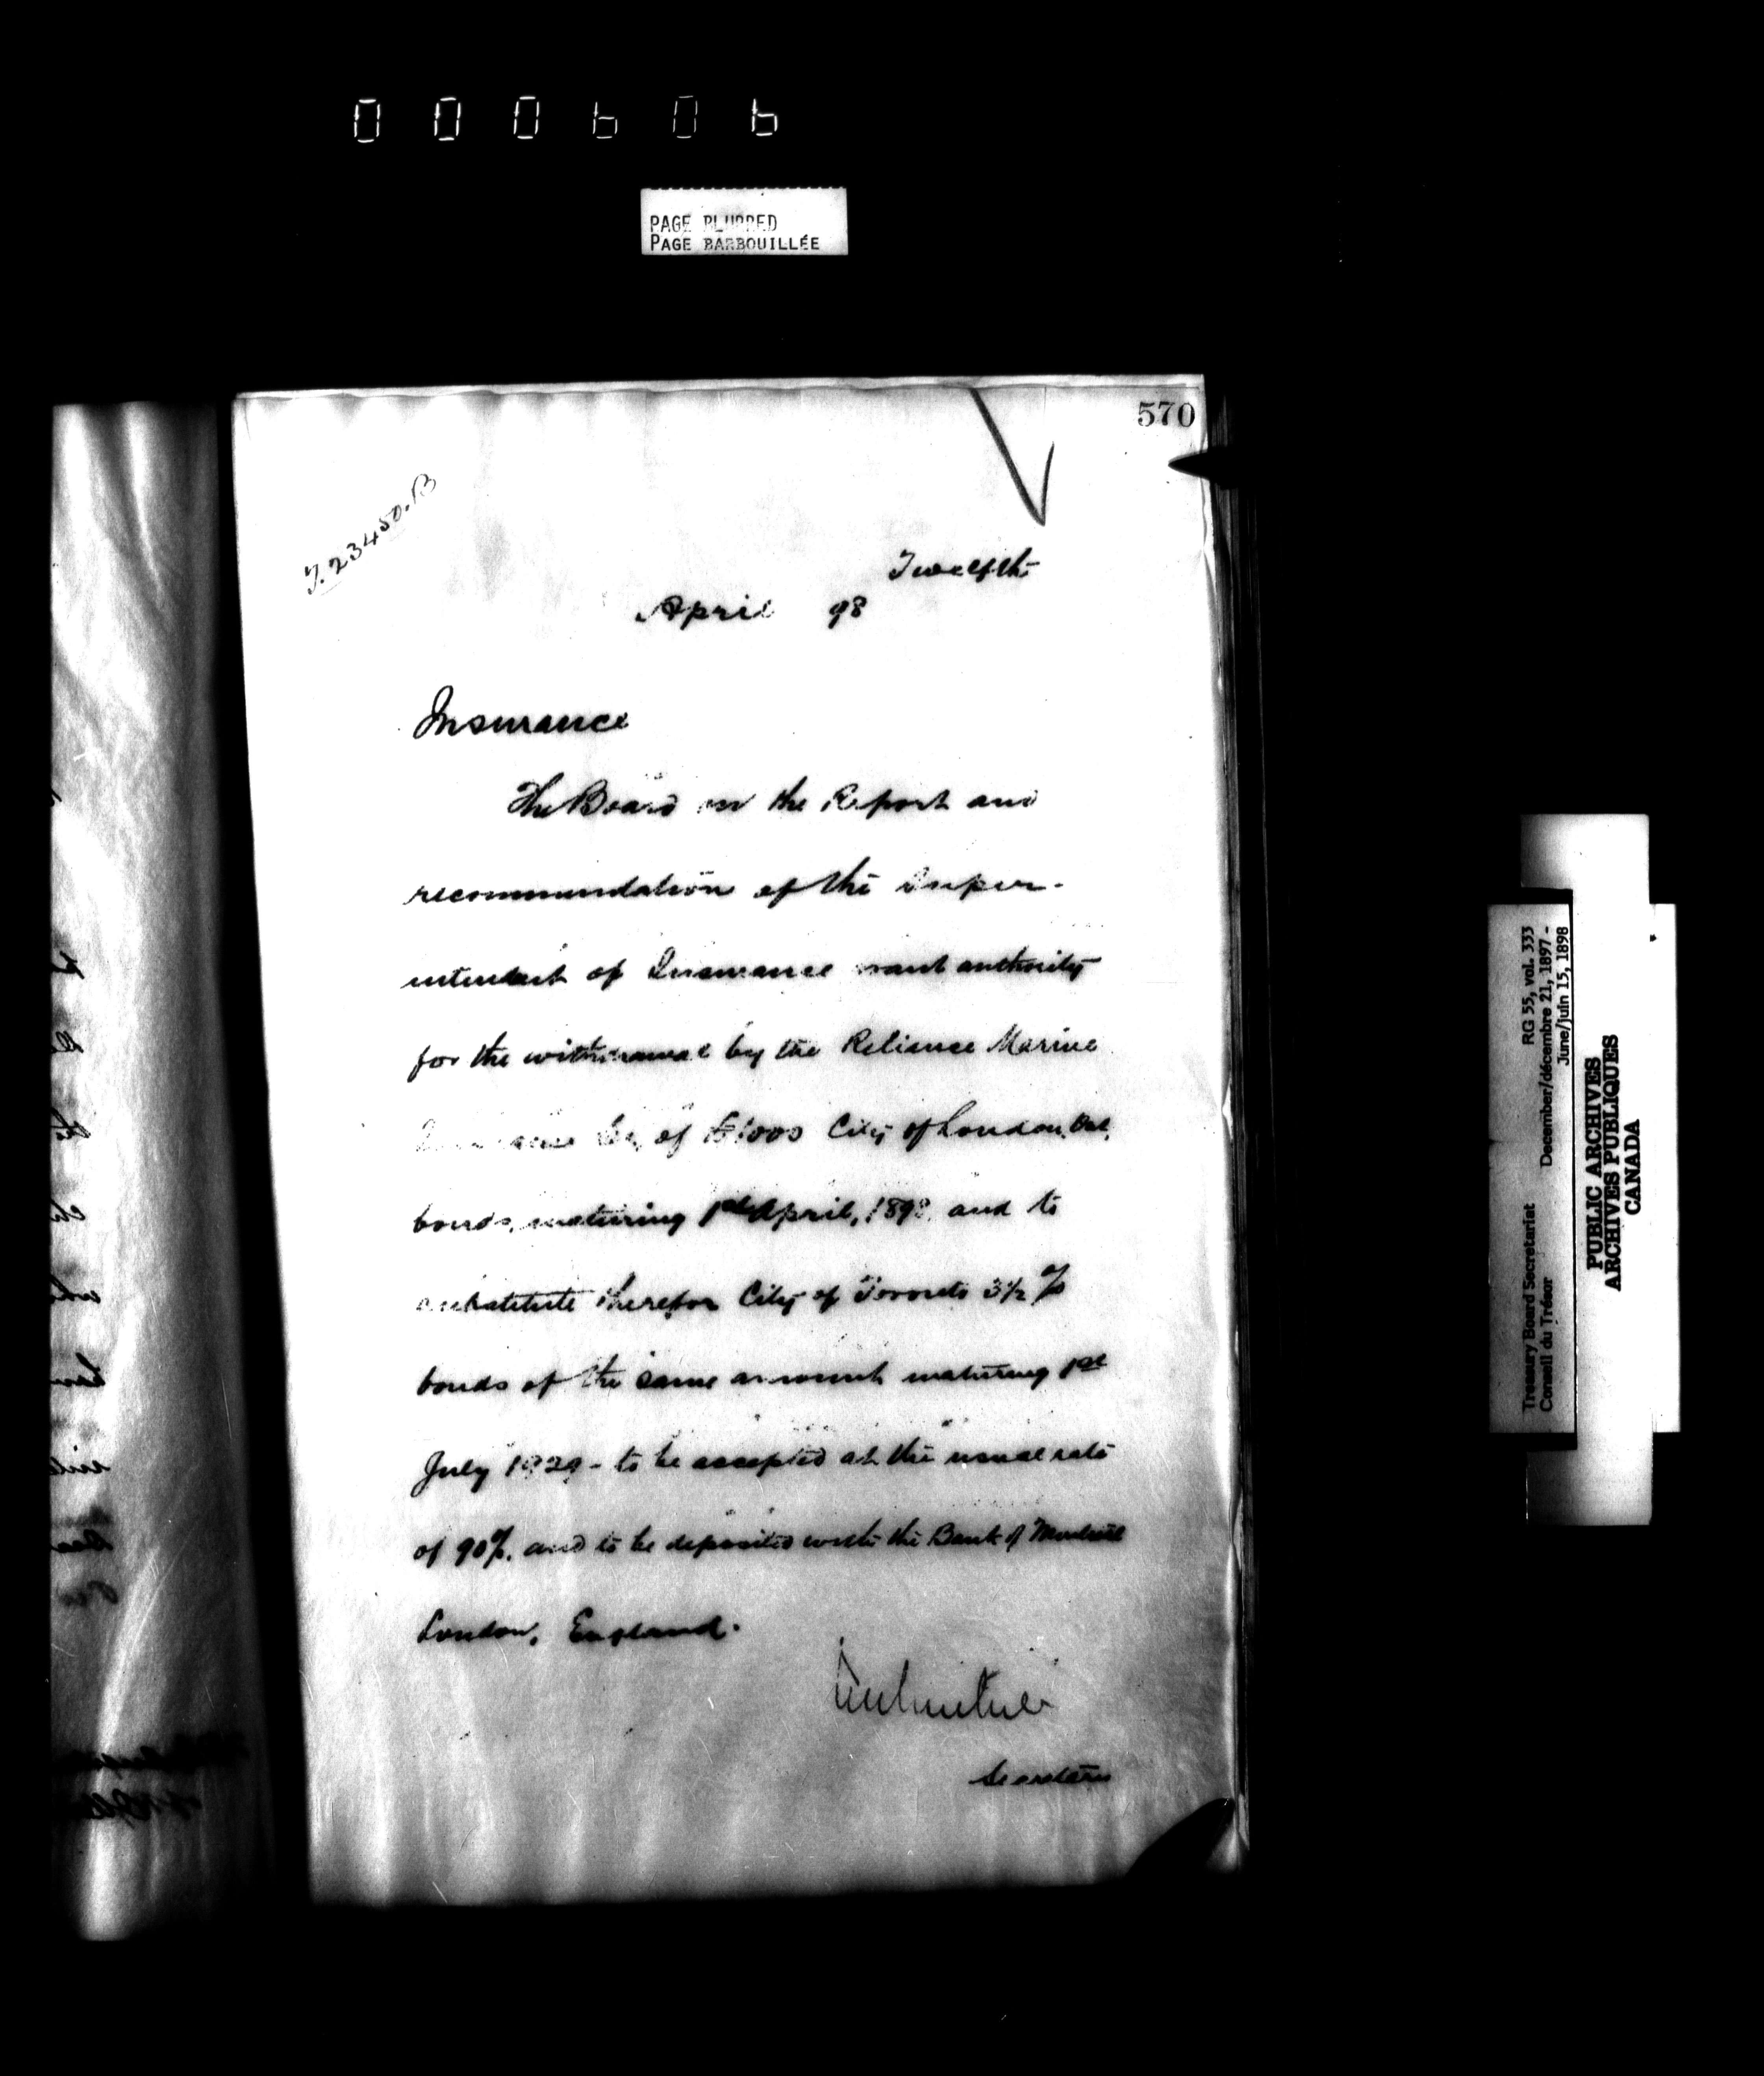 000606
PAGE BLURRED
PAGE BARBOUILLÉE
570
T.23450.B
Twelfth
April 98
Insurance
The Board on the Report and
recommendation of the Super-
intendent of Insurance grant authority
for the withdrawal by the Reliance Marine
Insurance Co, of £1000 City of London, Ont,
bonds, maturing 1st April, 1898, and to
substitute therefor City of Toronto 3½%
bonds of the same amount maturing 1st
July 1929 - to be accepted at the usual rate
of 90%. and to be deposited with the Bank of Montreal
London, England.
Secretary
Treasury Board Secretariat RG 55, vol. 333
Conseil du Trésor December/décembre 21, 1897 -
June/juin 15, 1898
PUBLIC ARCHIVES
ARCHIVES PUBLIQUES
CANADA